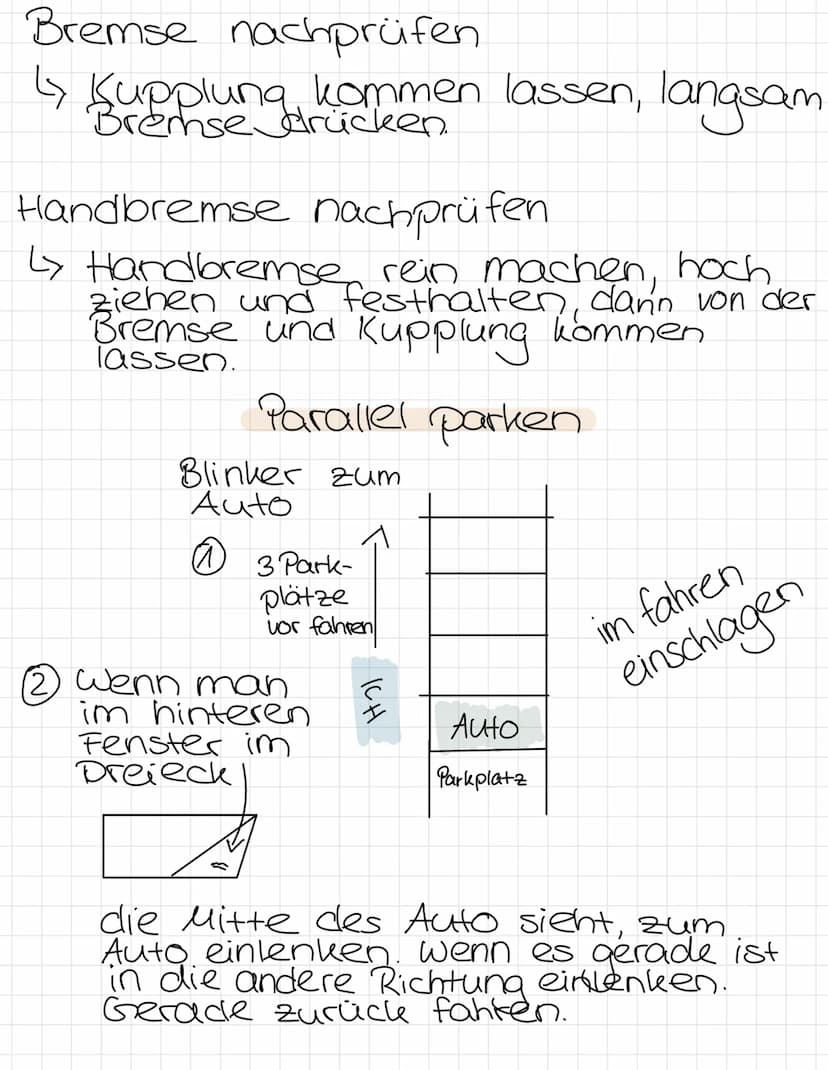 Bremse nachprüfen
↳ Kupplung kommen lassen, langsam
Bremse drücken.
Handbremse nachprüfen
↳ Handbremse rein machen, hoch
ziehen und festhalten, dann von der
Bremse und Kupplung kommen
lassen.
Parallel parken
Blinker zum
Auto
① 3 Park-
plätze
vor fahren
im fahren
einschlagen
② Wenn man
im hinteren
Fenster im
Dreieck
ICH
Auto
Parkplatz
die Mitte des Auto sieht, zum
Auto einlenken. wenn es gerade ist
in die andere Richtung einlenken.
Gerade zurück fahren.